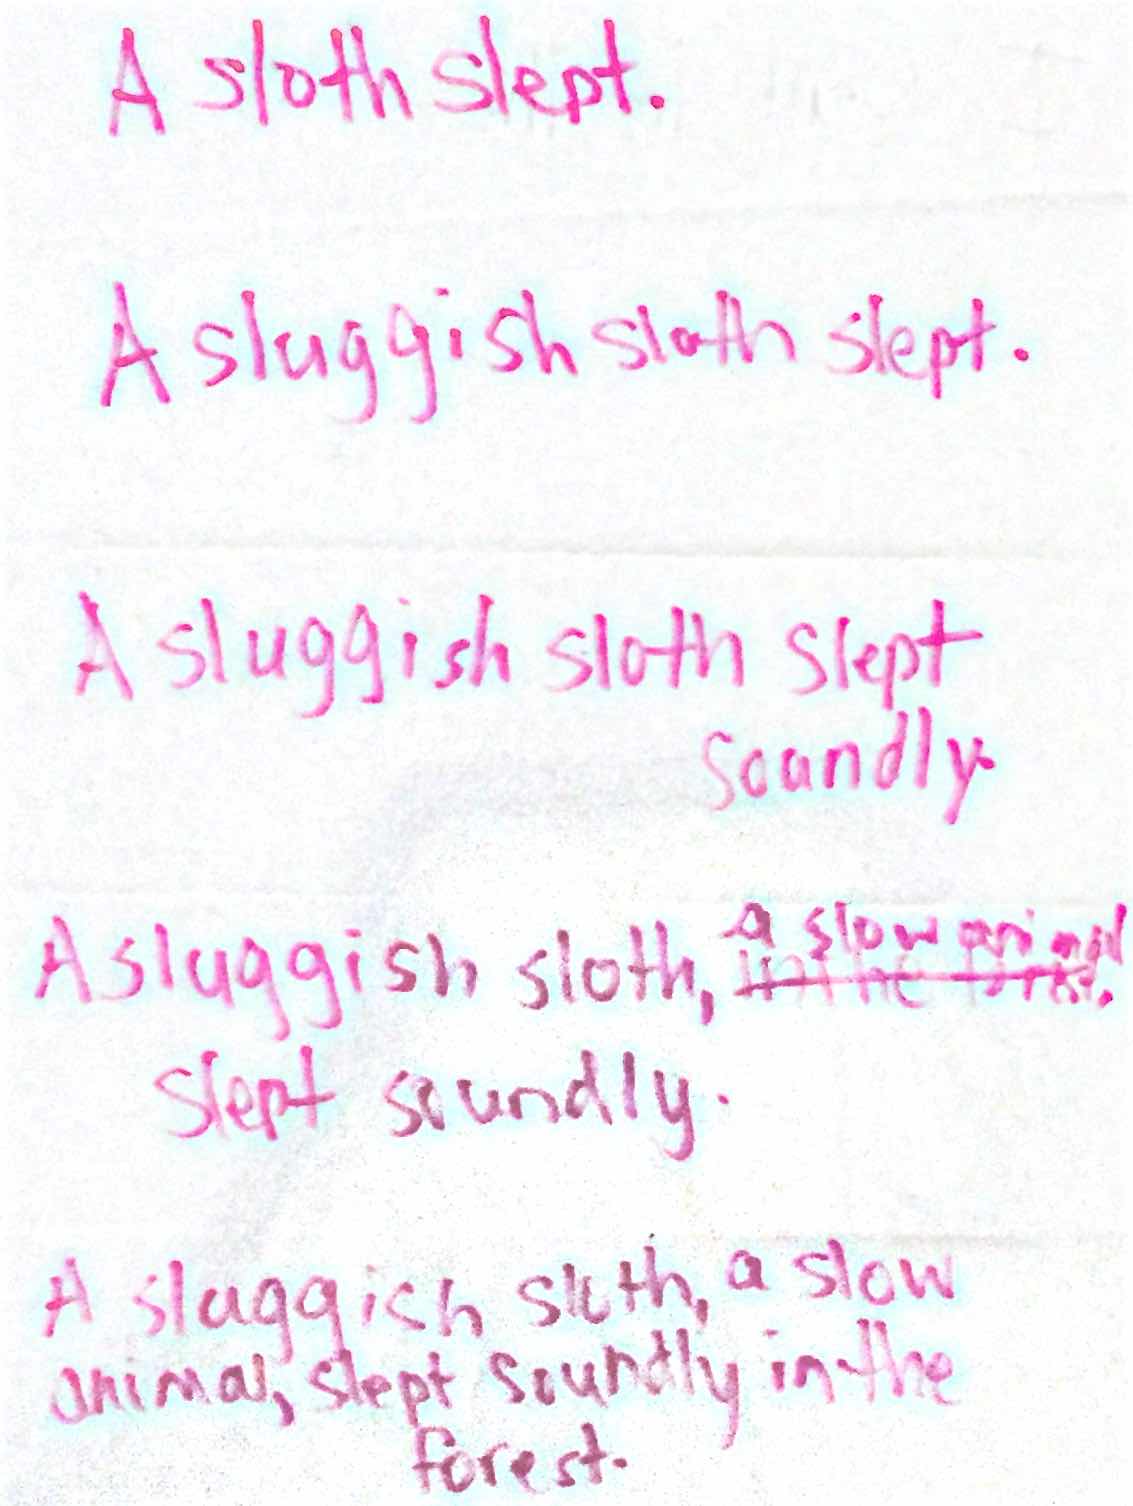 A sloth slept.
A sluggish sloth slept.
A sluggish sloth slept
soundly.
A sluggish sloth, a slow animal
in the forest.
slept soundly.
A sluggish sloth, a slow
animal, slept soundly in the
forest.